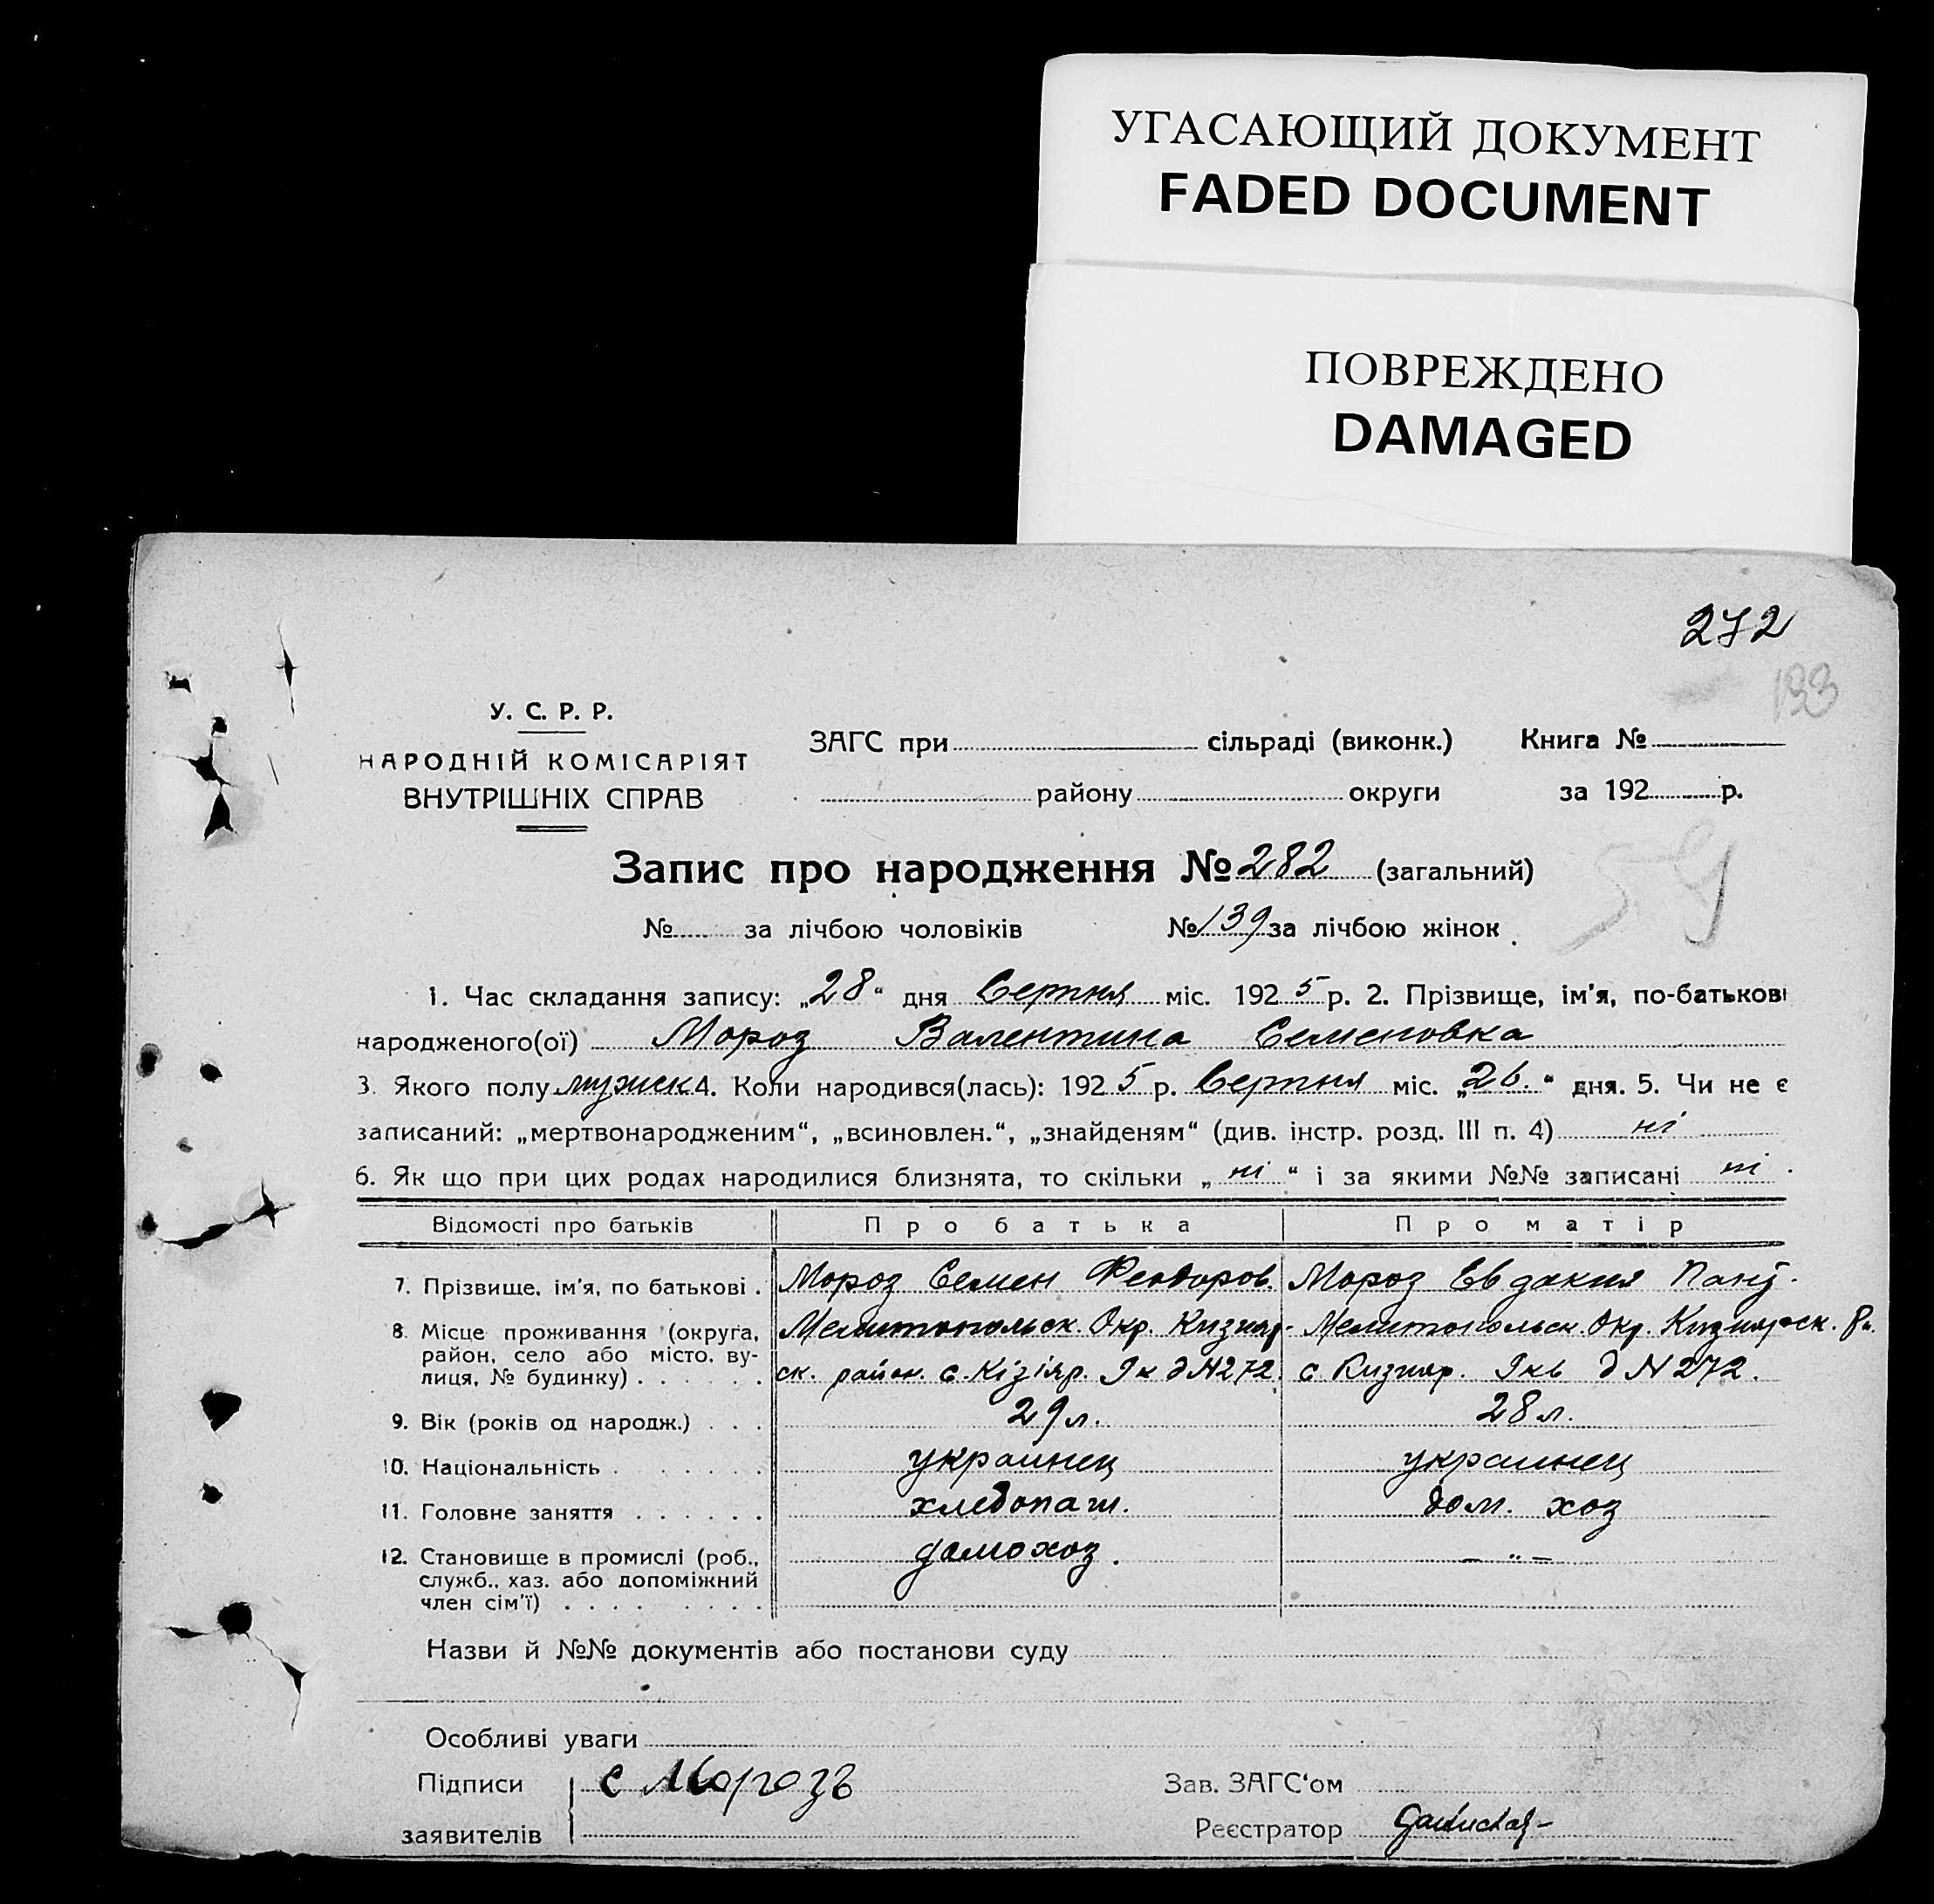 УГАСАЮЩИЙ ДОКУМЕНТ
FADED DOCUMENT
ПОВРЕЖДЕНО
DAMAGED
272
133
У. С. Р. Р.
НАРОДНІЙ КОМІСАРІЯТ
ВНУТРІШНІХ СПРАВ
ЗАГС при сільраді (виконк.) Книга №
району округи за 192 р.
Запис про народження № 282 (загальний)
59
№ за лічбою чоловіків № 139 за лічбою жінок
1. Час складання запису: „28“ дня Серпня міс. 1925 р. 2. Прізвище, ім'я, по-батькові
народженого(ої) Мороз Валентина Семеновка
3. Якого полу мужск 4. Коли народився(лась): 1925 р. Серпня міс. „26.“ дня. 5. Чи не є
записаний: „мертвонародженим“, „всиновлен.“, „знайденям“ (див. інстр. розд. III п. 4) ні
6. Як що при цих родах народилися близнята, то скільки „ні“ і за якими №№ записані ні
Відомості про батьків Про батька Про матір
7. Прізвище, ім'я, по батькові . Мороз Семен Феодоров. Мороз Евдакия
8. Місце проживання (округа, Мелитопольск. Окр. Кизияр- Мелитопольск. Окр. Кизиярск. Рн.
район, село або місто, ву-
лиця, № будинку) . . . . . . ск. район. с. Кізіяр. Iк д N272. с Кизияр. Iкв д N 272.
9. Вік (років од народж.) . . . 29 л. 28 л.
10. Національність . . . . . . украинец украинец
11. Головне заняття . . . . . . хлебопаш. дом. хоз
12. Становище в промислі (роб., дамохоз. — „ —
служб., хаз. або допоміжний
член сім'ї) . . . . . . . . .
Назви й №№ документів або постанови суду
Особливі уваги
Підписи с Морозъ Зав. ЗАГС'ом
заявителів Реєстратор